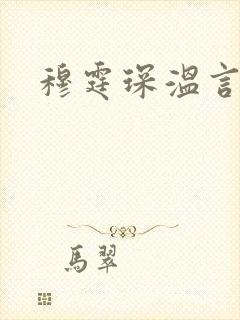 穆霆琛溫言
馬翠